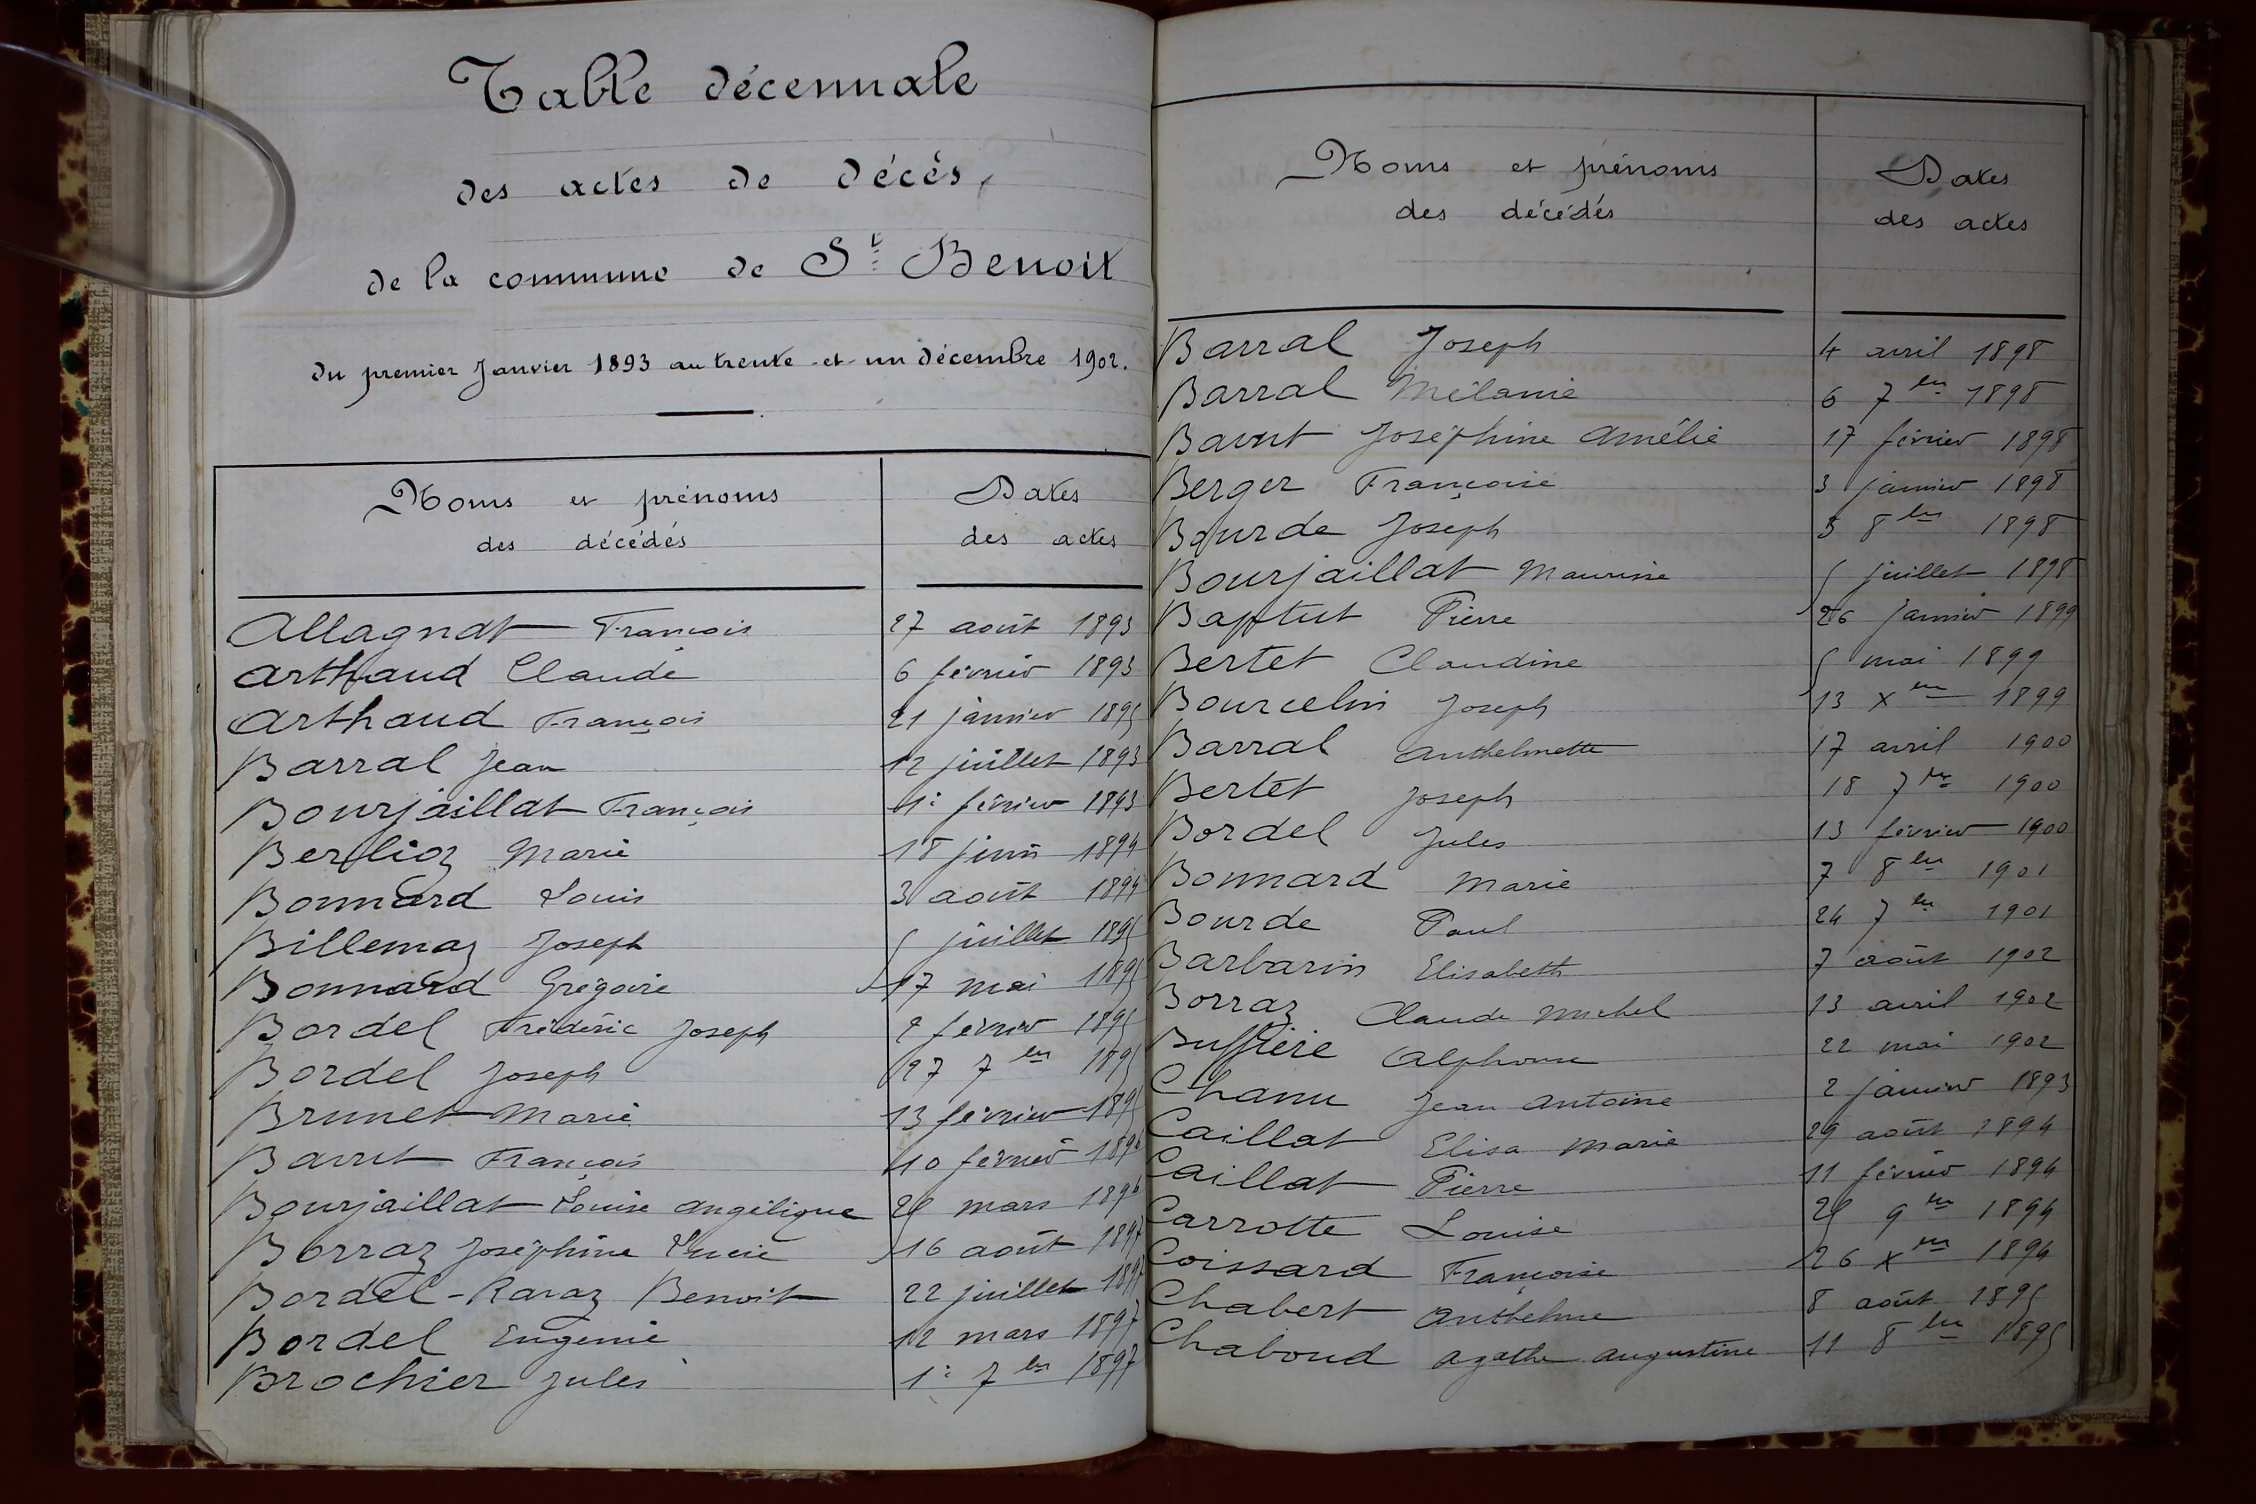 Table décennale
des actes de décès,
de la commune de St Benoit
du premier Janvier 1893 au trente-et-un décembre 1902.
Noms et prénoms
des décédés
Dates
des actes
Allagnat François 27 août 1893
Arthaud Claude 6 février 1893
Arthaud François 21 janvier 1895
Barral Jean 12 juillet 1893
Bourjaillat François 1er février 1893
Berlioz Marie 18 juin 1894
Bonnard Louis 3 août 1894
Billemaz Joseph 5 juillet 1895
Bonnard Grégoire 17 mai 1895
Bordel Frédéric Joseph 2 février 1895
Bordel Joseph 27 7bre 1895
Brunet Marie 13 février 1895
Bavut François 10 février 1896
Bourjaillat Louise Angélique 25 mars 1896
Borraz Joséphine Lucie 16 août 1897
Bordel-Ravaz Benoit 22 juillet 1897
Bordel Eugénie 12 mars 1897
Brochier Jules 1er 7bre 1897
Noms et prénoms
des décédés
Dates
des actes
Barral Joseph 4 avril 1898
Barral Mélanie 6 7bre 1898
Bavut Joséphine Amélie 17 février 1898
Berger Françoise 3 janvier 1898
Bourde Joseph 3 8bre 1898
Bourjaillat Maurice 5 juillet 1898
Baptut Pierre 26 janvier 1899
Bertet Claudine 5 mai 1899
Bourcelin Joseph 13 Xbre 1899
Barral Anthelmette 17 avril 1900
Bertet Joseph 18 7bre 1900
Bordel Jules 13 février 1900
Bonnard Marie 7 8bre 1901
Bourde Paul 24 7bre 1901
Barbarin Elisabeth 7 août 1902
Borraz Claude Michel 13 avril 1902
Buffière Alphonse 22 mai 1902
Chanu Jean Antoine 2 janvier 1893
Caillat Elisa Marie 29 août 1894
Caillat Pierre 11 février 1894
Carrotte Louise 25 9bre 1894
Coissard Françoise 26 Xbre 1894
Chabert Anthelme 8 août 1895
Chaboud Agathe Augustine 11 8bre 1895